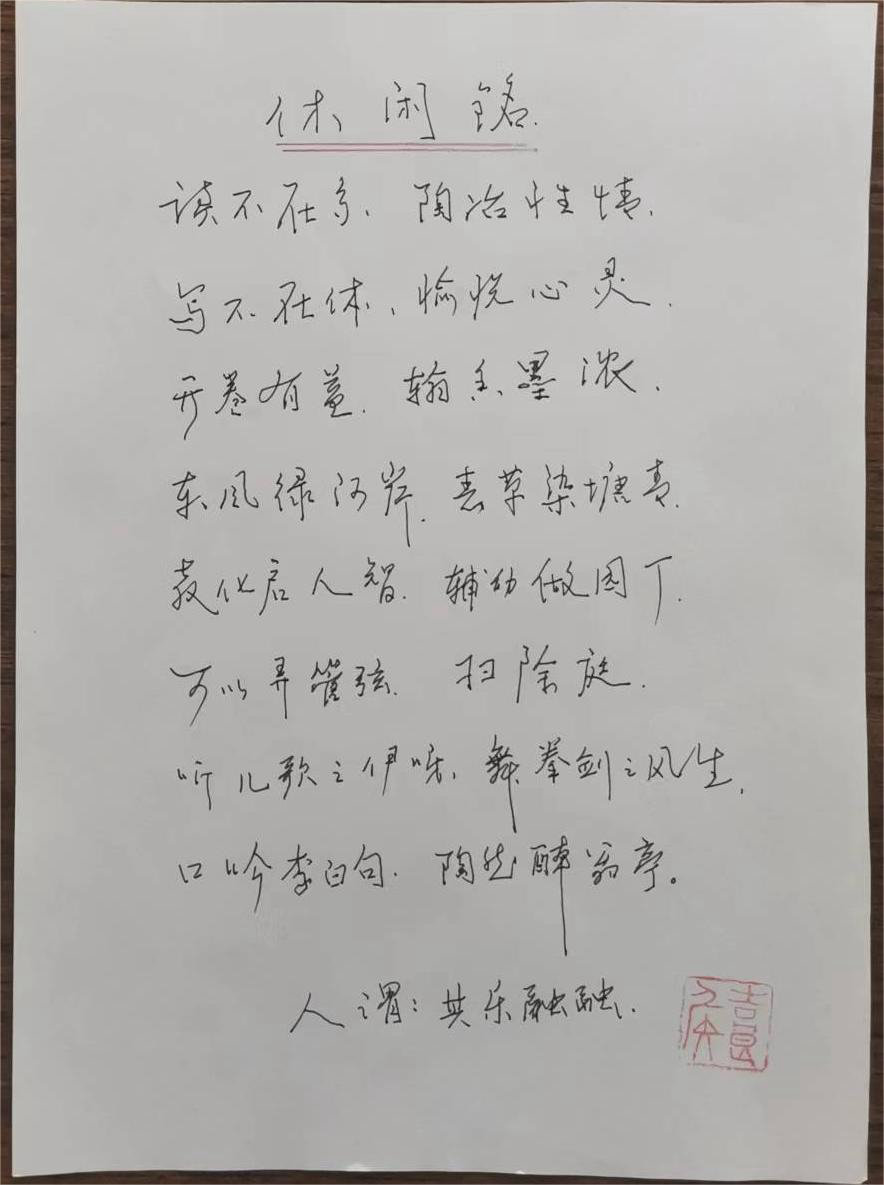 休闲铭
读不在多、陶冶性情、
写不在体、愉悦心灵、
开卷有益、翰香墨浓、
东风绿河岸、春草染塘青、
教化启人智、辅幼做园丁、
可以弄管弦、扫除庭、
听儿歌之伊呀、舞拳剑之风生、
口吟李白句、陶然醉翁亭。
人谓：其乐融融、